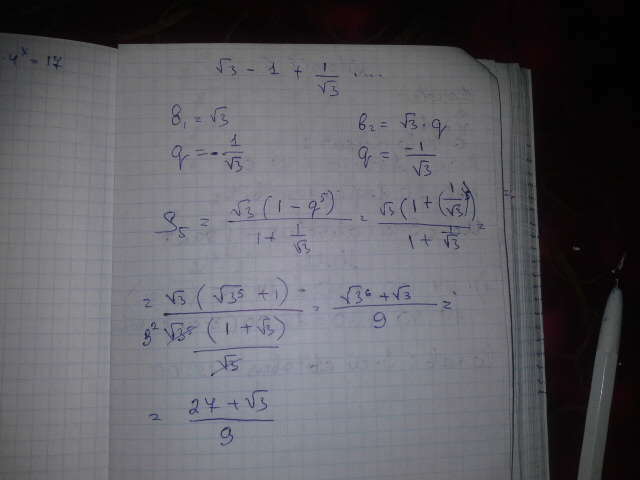 ·4^x = 17
√3 - 1 + 1/√3 ....
b₁ = √3    b₂ = √3 · q
q = -1/√3    q = -1/√3
S₅ = √3 (1 - q⁵) / (1 + 1/√3) = √3 (1 + (1/√3)⁵) / (1 + 1/√3) =
= √3 (√3⁵ + 1) / (3² √3⁵ (1 + √3) / √3) = (√3⁶ + √3) / 9 =
= (27 + √3) / 9